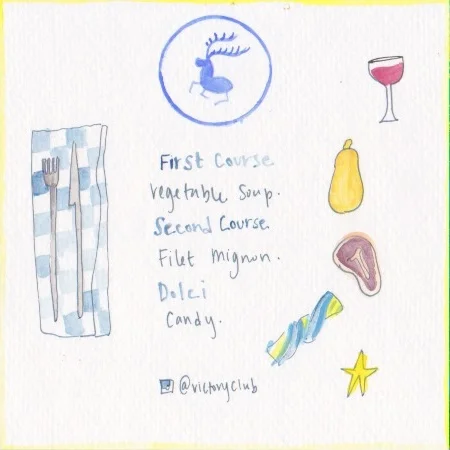 First Course
Vegetable Soup.
Second Course
Filet Mignon.
Dolci
Candy.
@victoryclub